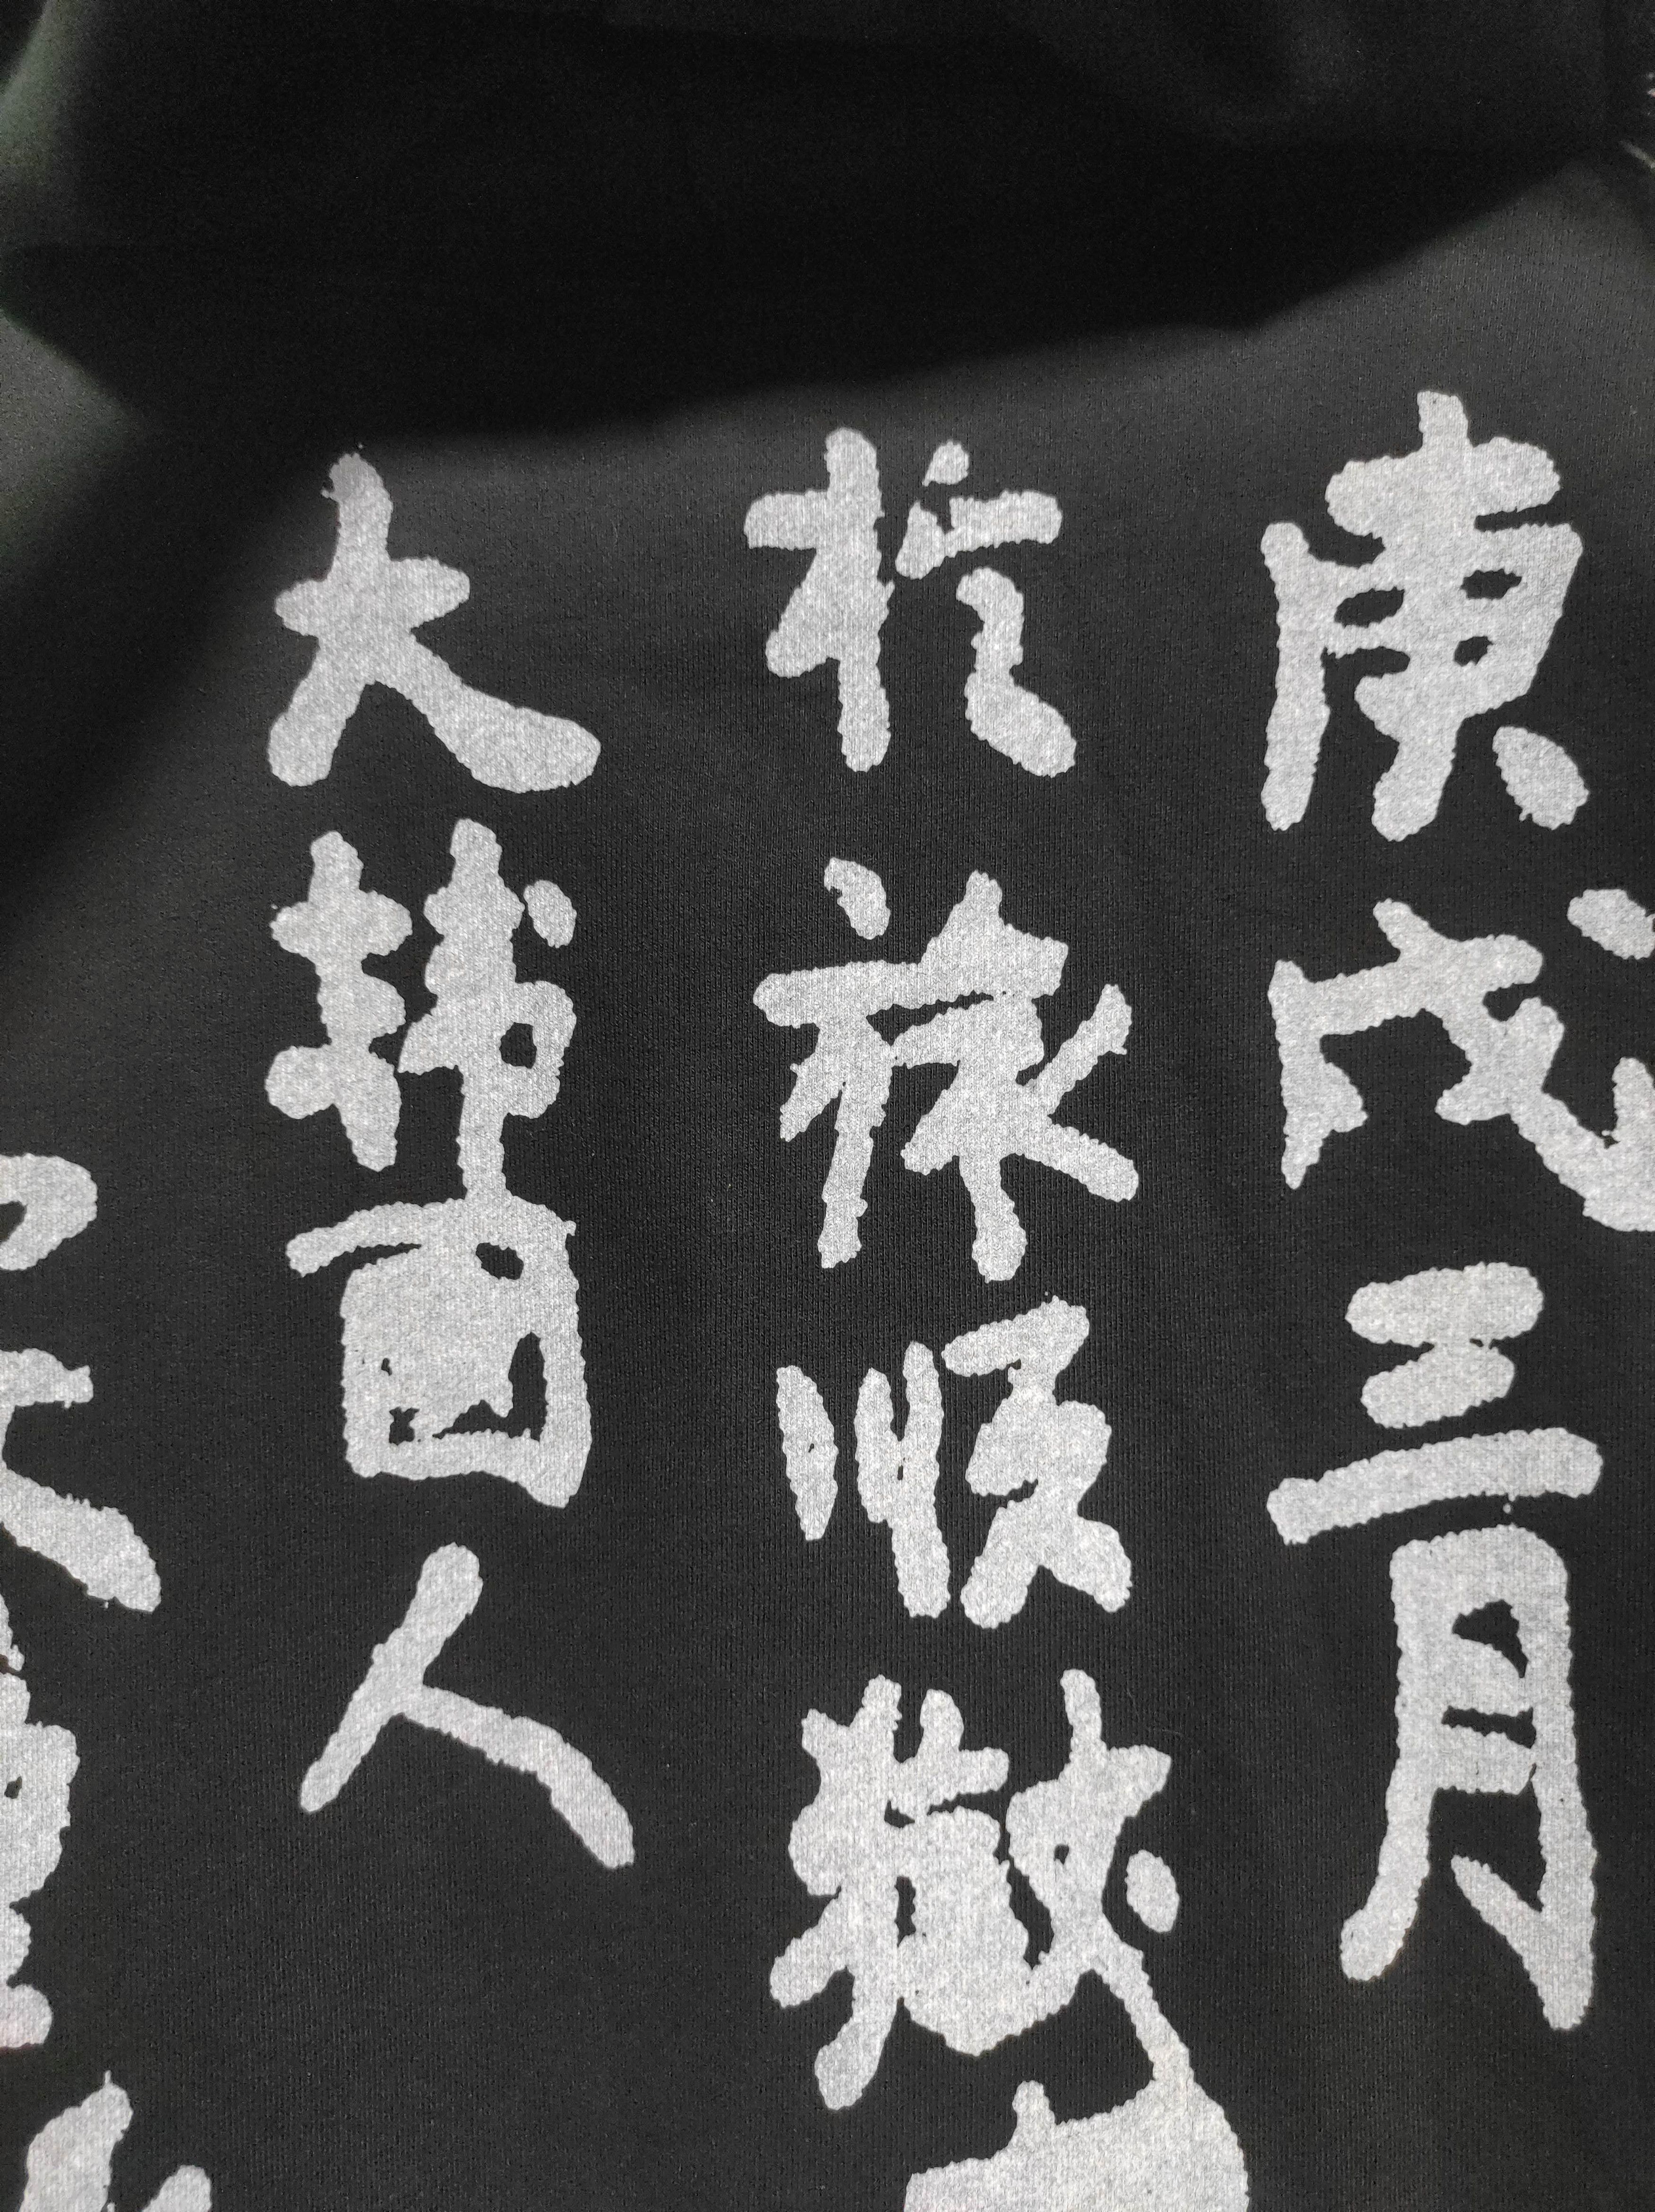 庚戌三月
於旅順獄中
大韓國人